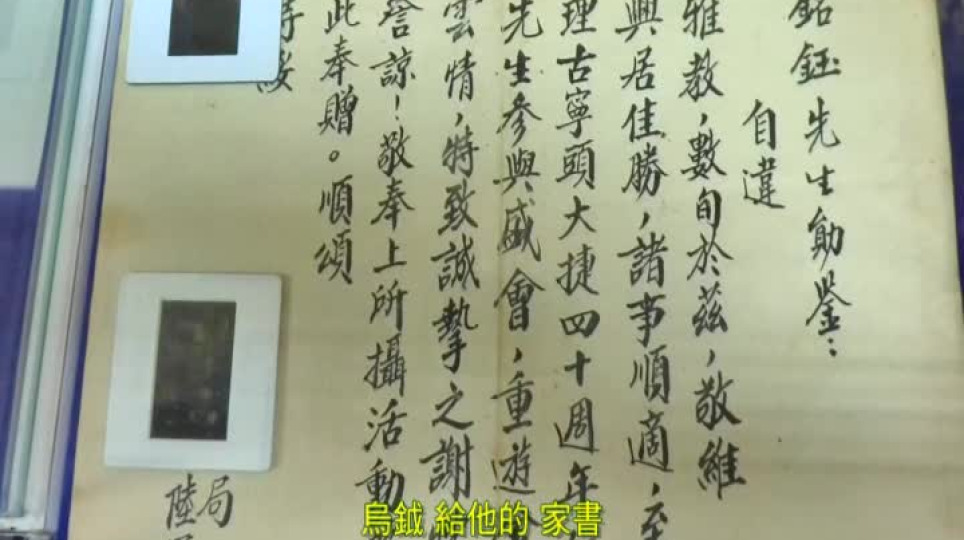 銘鈺先生勛鑒：
自違
雅教，數旬於茲，敬維
興居佳勝，諸事順適，至
理古寧頭大捷四十週年
先生參與盛會，重遊
雲情，特致誠摯之謝
詧諒！敬奉上所攝活動
此奉贈。順頌
時綏
局
陸
烏鉞 給他的 家書